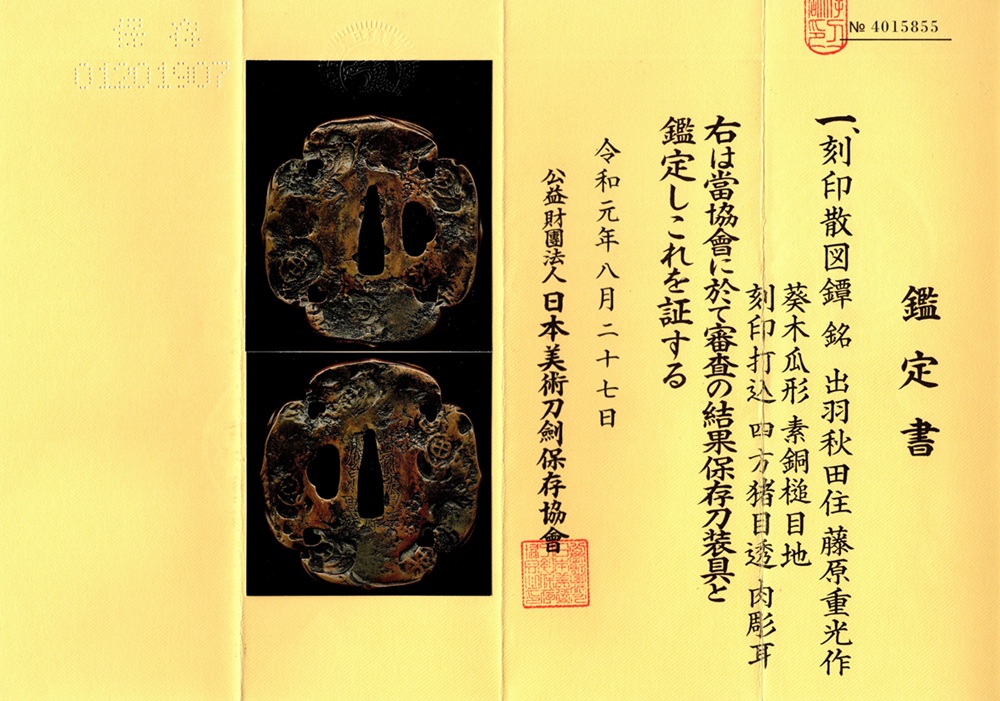 № 4015855
鑑定書
一、刻印散図鐔 銘 出羽秋田住 藤原重光作
葵木瓜形 素銅槌目地
刻印打込 四方猪目透 肉彫耳
右は當協會に於て審査の結果保存刀装具と
鑑定しこれを証する
令和元年八月二十七日
公益財團法人 日本美術刀劍保存協會
保存
01201907